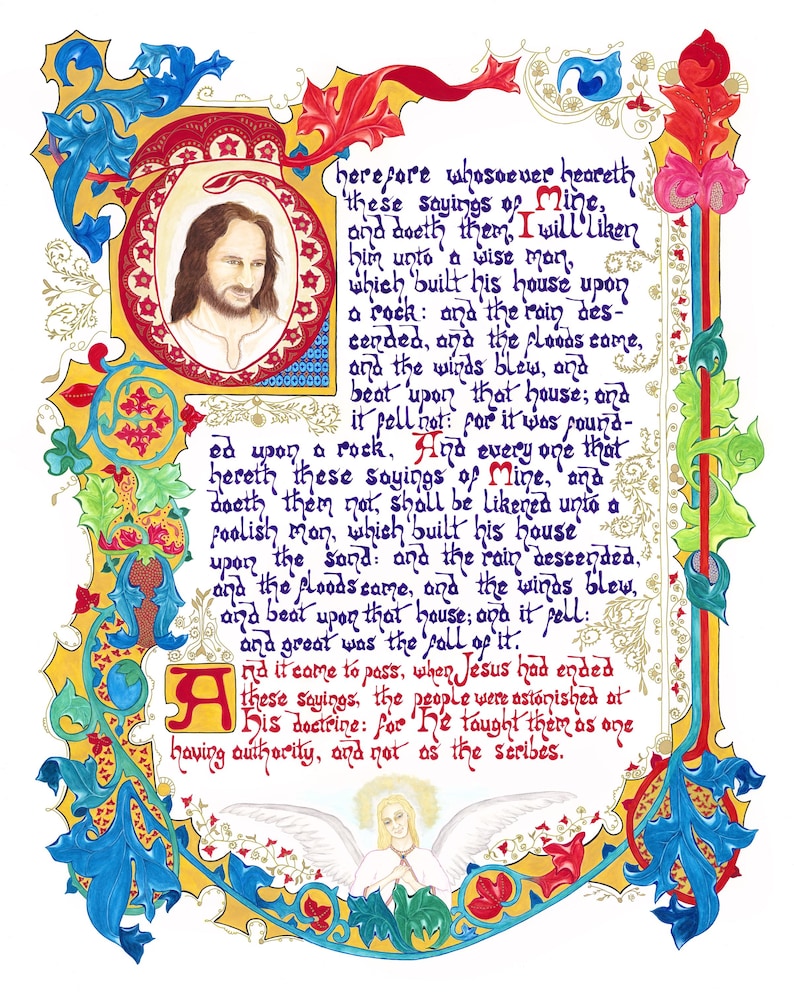 Therefore whosoever heareth
these sayings of Mine,
and doeth them, I will liken
him unto a wise man,
which built his house upon
a rock: and the rain des-
cended, and the floods came,
and the winds blew, and
beat upon that house; and
it fell not: for it was found-
ed upon a rock. And every one that
hereth these sayings of Mine, and
doeth them not, shall be likened unto a
foolish man, which built his house
upon the sand: and the rain descended,
and the floods came, and the winds blew,
and beat upon that house; and it fell:
and great was the fall of it.
And it came to pass, when Jesus had ended
these sayings, the people were astonished at
His doctrine: for He taught them as one
having authority, and not as the scribes.